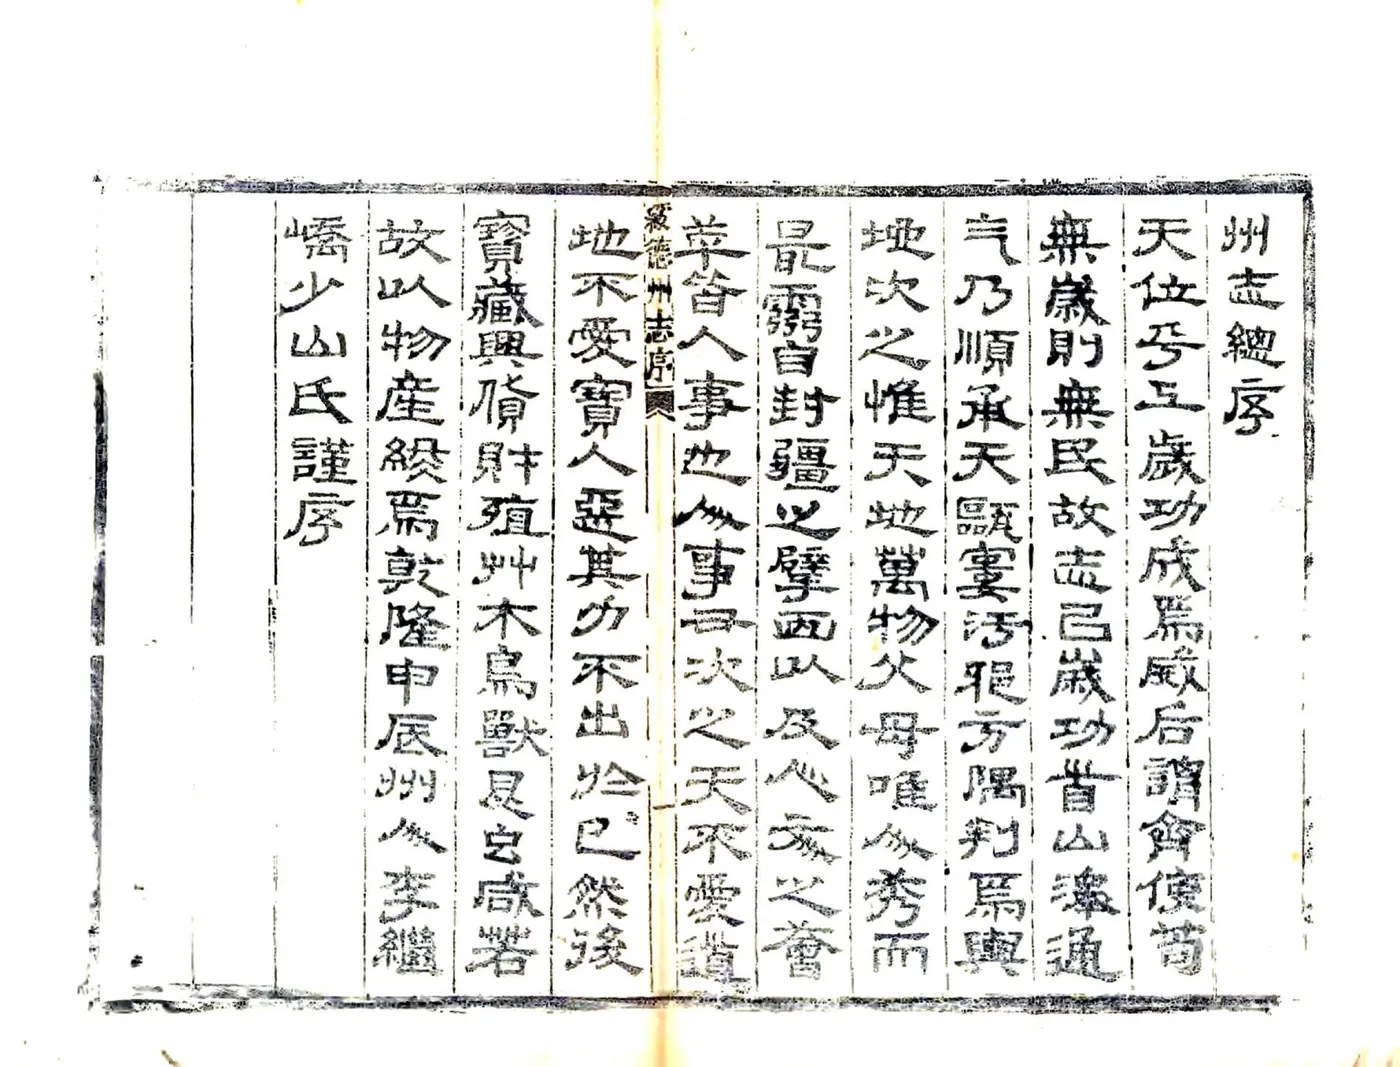 州志總序
天位乎上歲功成焉威后謂齊使苟
無歲則無民故志己歲功首山澤通
气乃順承天甌窶汚邪方隅判焉輿
地次之惟天地萬物父母唯人秀而
最靈自封疆之擘畫以及人文之薈
萃皆人事也人事又次之天不愛道
綏德州志序
地不愛寶人惡其力不出於己然後
寶藏興貨財殖艸木鳥獸昆虫咸若
故以物産綴焉乾隆甲辰州人李繼
嶠少山氏謹序